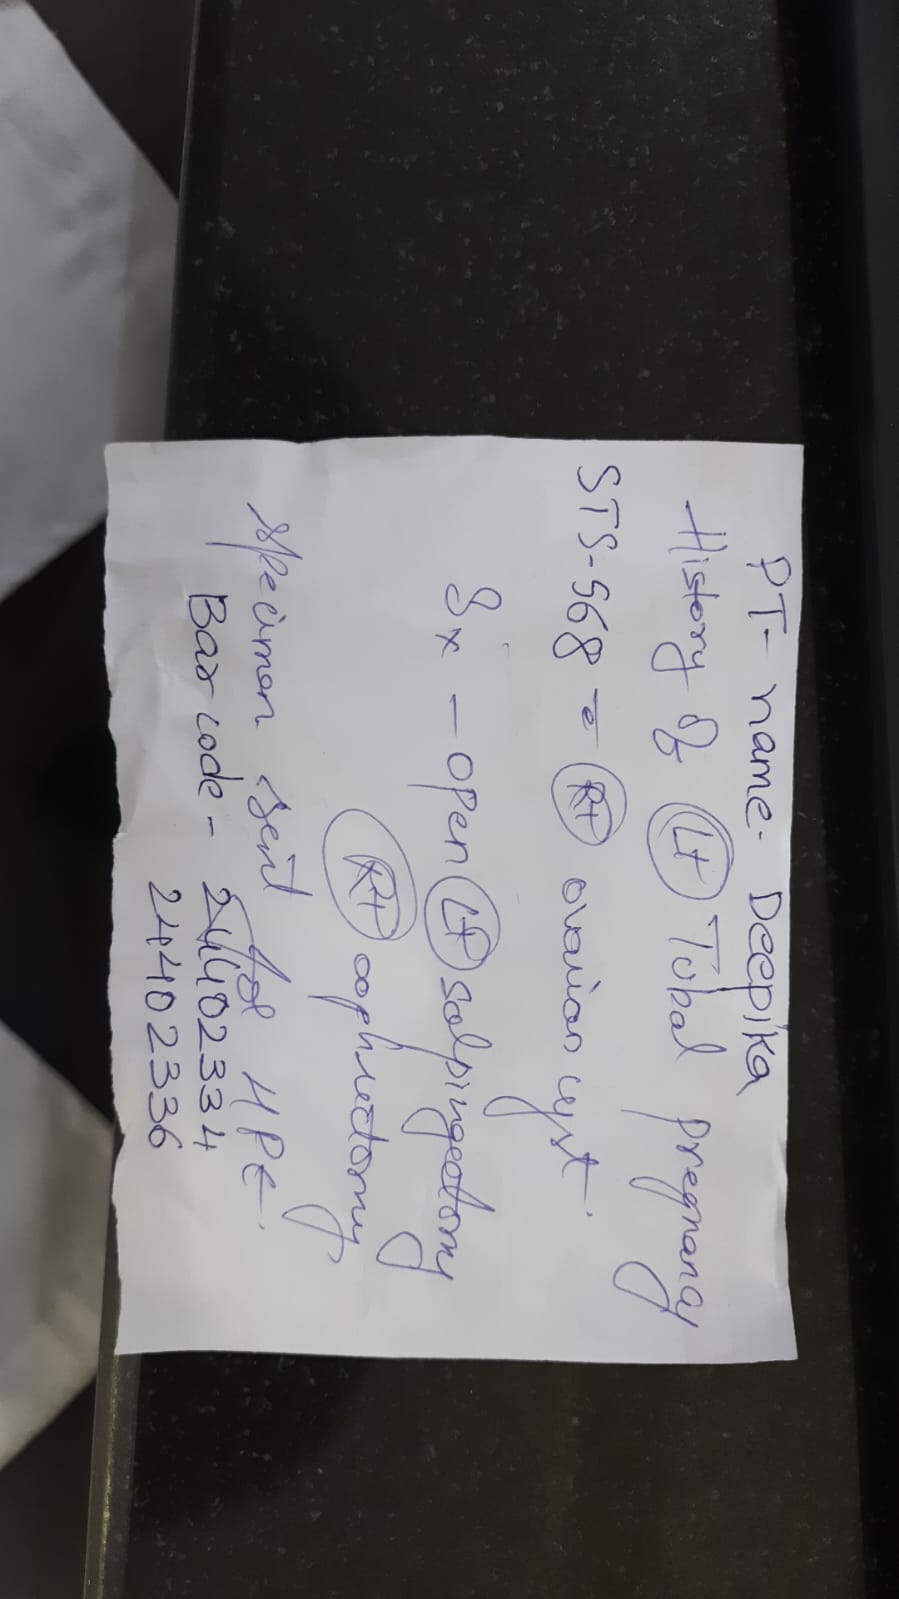 PT- name- Deepika
History of Lt Tubal pregnancy
STS-568 c Rt ovarian cyst.
Sx - open Lt salpingectomy
Rt oophrectomy
specimen sent for HPE.
Bar code - 24402334
24402336